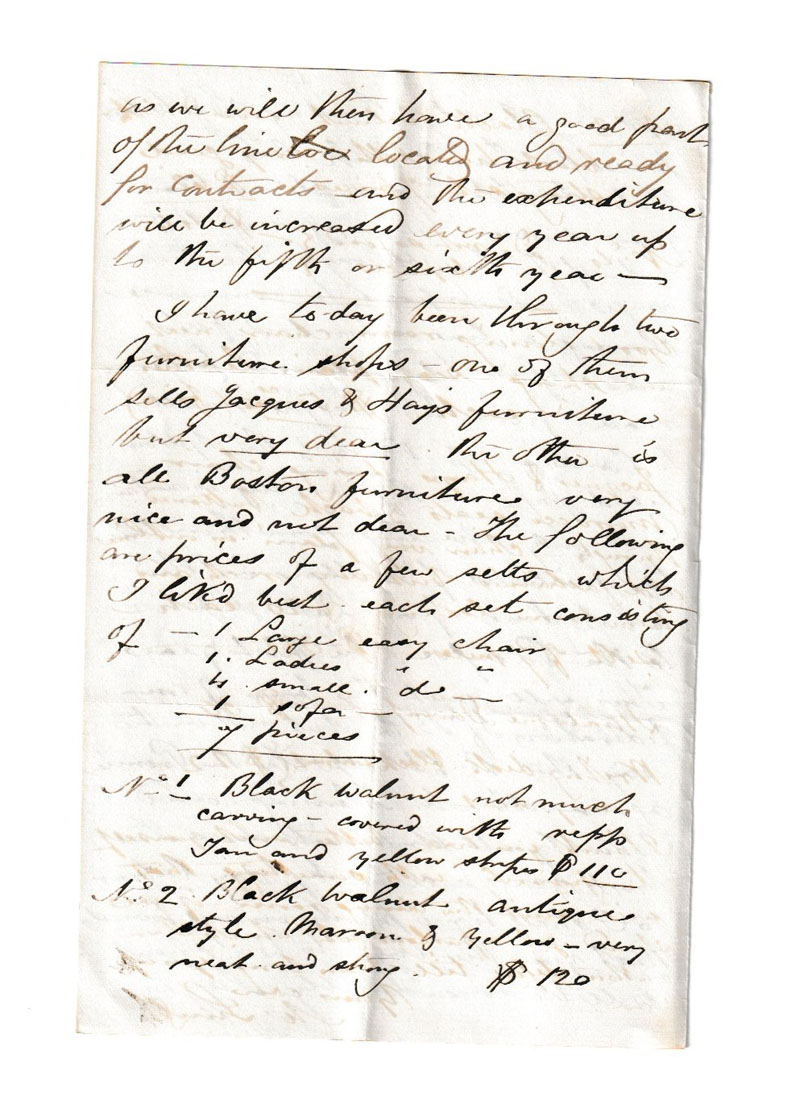 as we will then have a good part
of the line loc located and ready
for contracts and the expenditure
will be increased every year up
to the fifth or sixth year —
I have to-day been through two
furniture shops – one of them
sells Jacques & Hay's furniture
but very dear. the other is
all Boston furniture very
nice and not dear – The following
are prices of a few setts which
I lik'd best. each set consisting
of – 1 Large easy chair
1. Ladies " "
4. small. do —
1 sofa —
7 pieces
No. 1 Black walnut not much
carving – covered with repp
Tan and yellow stripes $110
No. 2 Black walnut antique
style. Maroon & yellow – very
neat and strong. $120